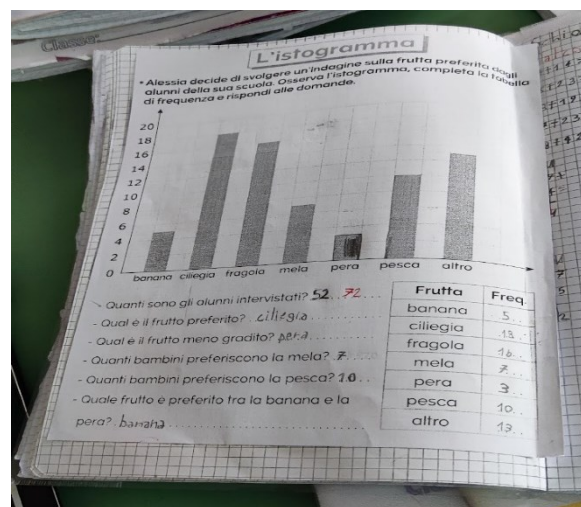 Classe:
L'istogramma
• Alessia decide di svolgere un'indagine sulla frutta preferita dagli
alunni della sua scuola. Osserva l'istogramma, completa la tabella
di frequenza e rispondi alle domande.
20
18
16
14
12
10
8
6
4
2
0
banana ciliegia fragola mela pera pesca altro
- Quanti sono gli alunni intervistati? 52 72
- Qual è il frutto preferito? ciliegia
- Qual è il frutto meno gradito? pera
- Quanti bambini preferiscono la mela? 7
- Quanti bambini preferiscono la pesca? 10
- Quale frutto è preferito fra la banana e la
pera? banana
Frutta Freq.
banana 5
ciliegia 18
fragola 16
mela 7
pera 3
pesca 10
altro 13